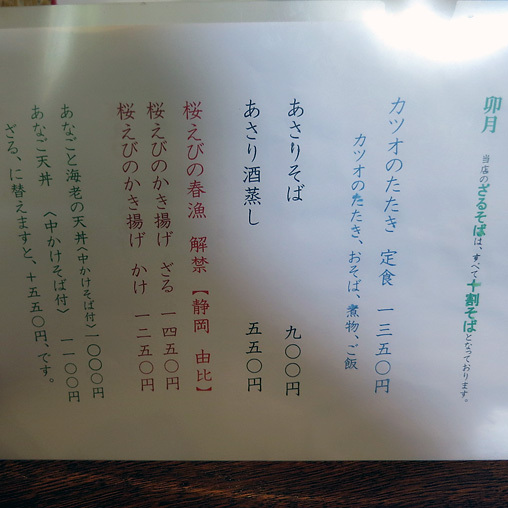 卯月
当店のざるそばは、すべて十割そばとなっております。
カツオのたたき 定食 一三五〇円
カツオのたたき、おそば、煮物、ご飯
あさりそば 九〇〇円
あさり酒蒸し 五五〇円
桜えびの春漁 解禁【静岡 由比】
桜えびのかき揚げ ざる 一四五〇円
桜えびのかき揚げ かけ 一二五〇円
あなごと海老の天丼〈中かけそば付〉一〇〇〇円
あなご天丼 〈中かけそば付〉 一一〇〇円
ざる、に替えますと、+五五〇円、です。